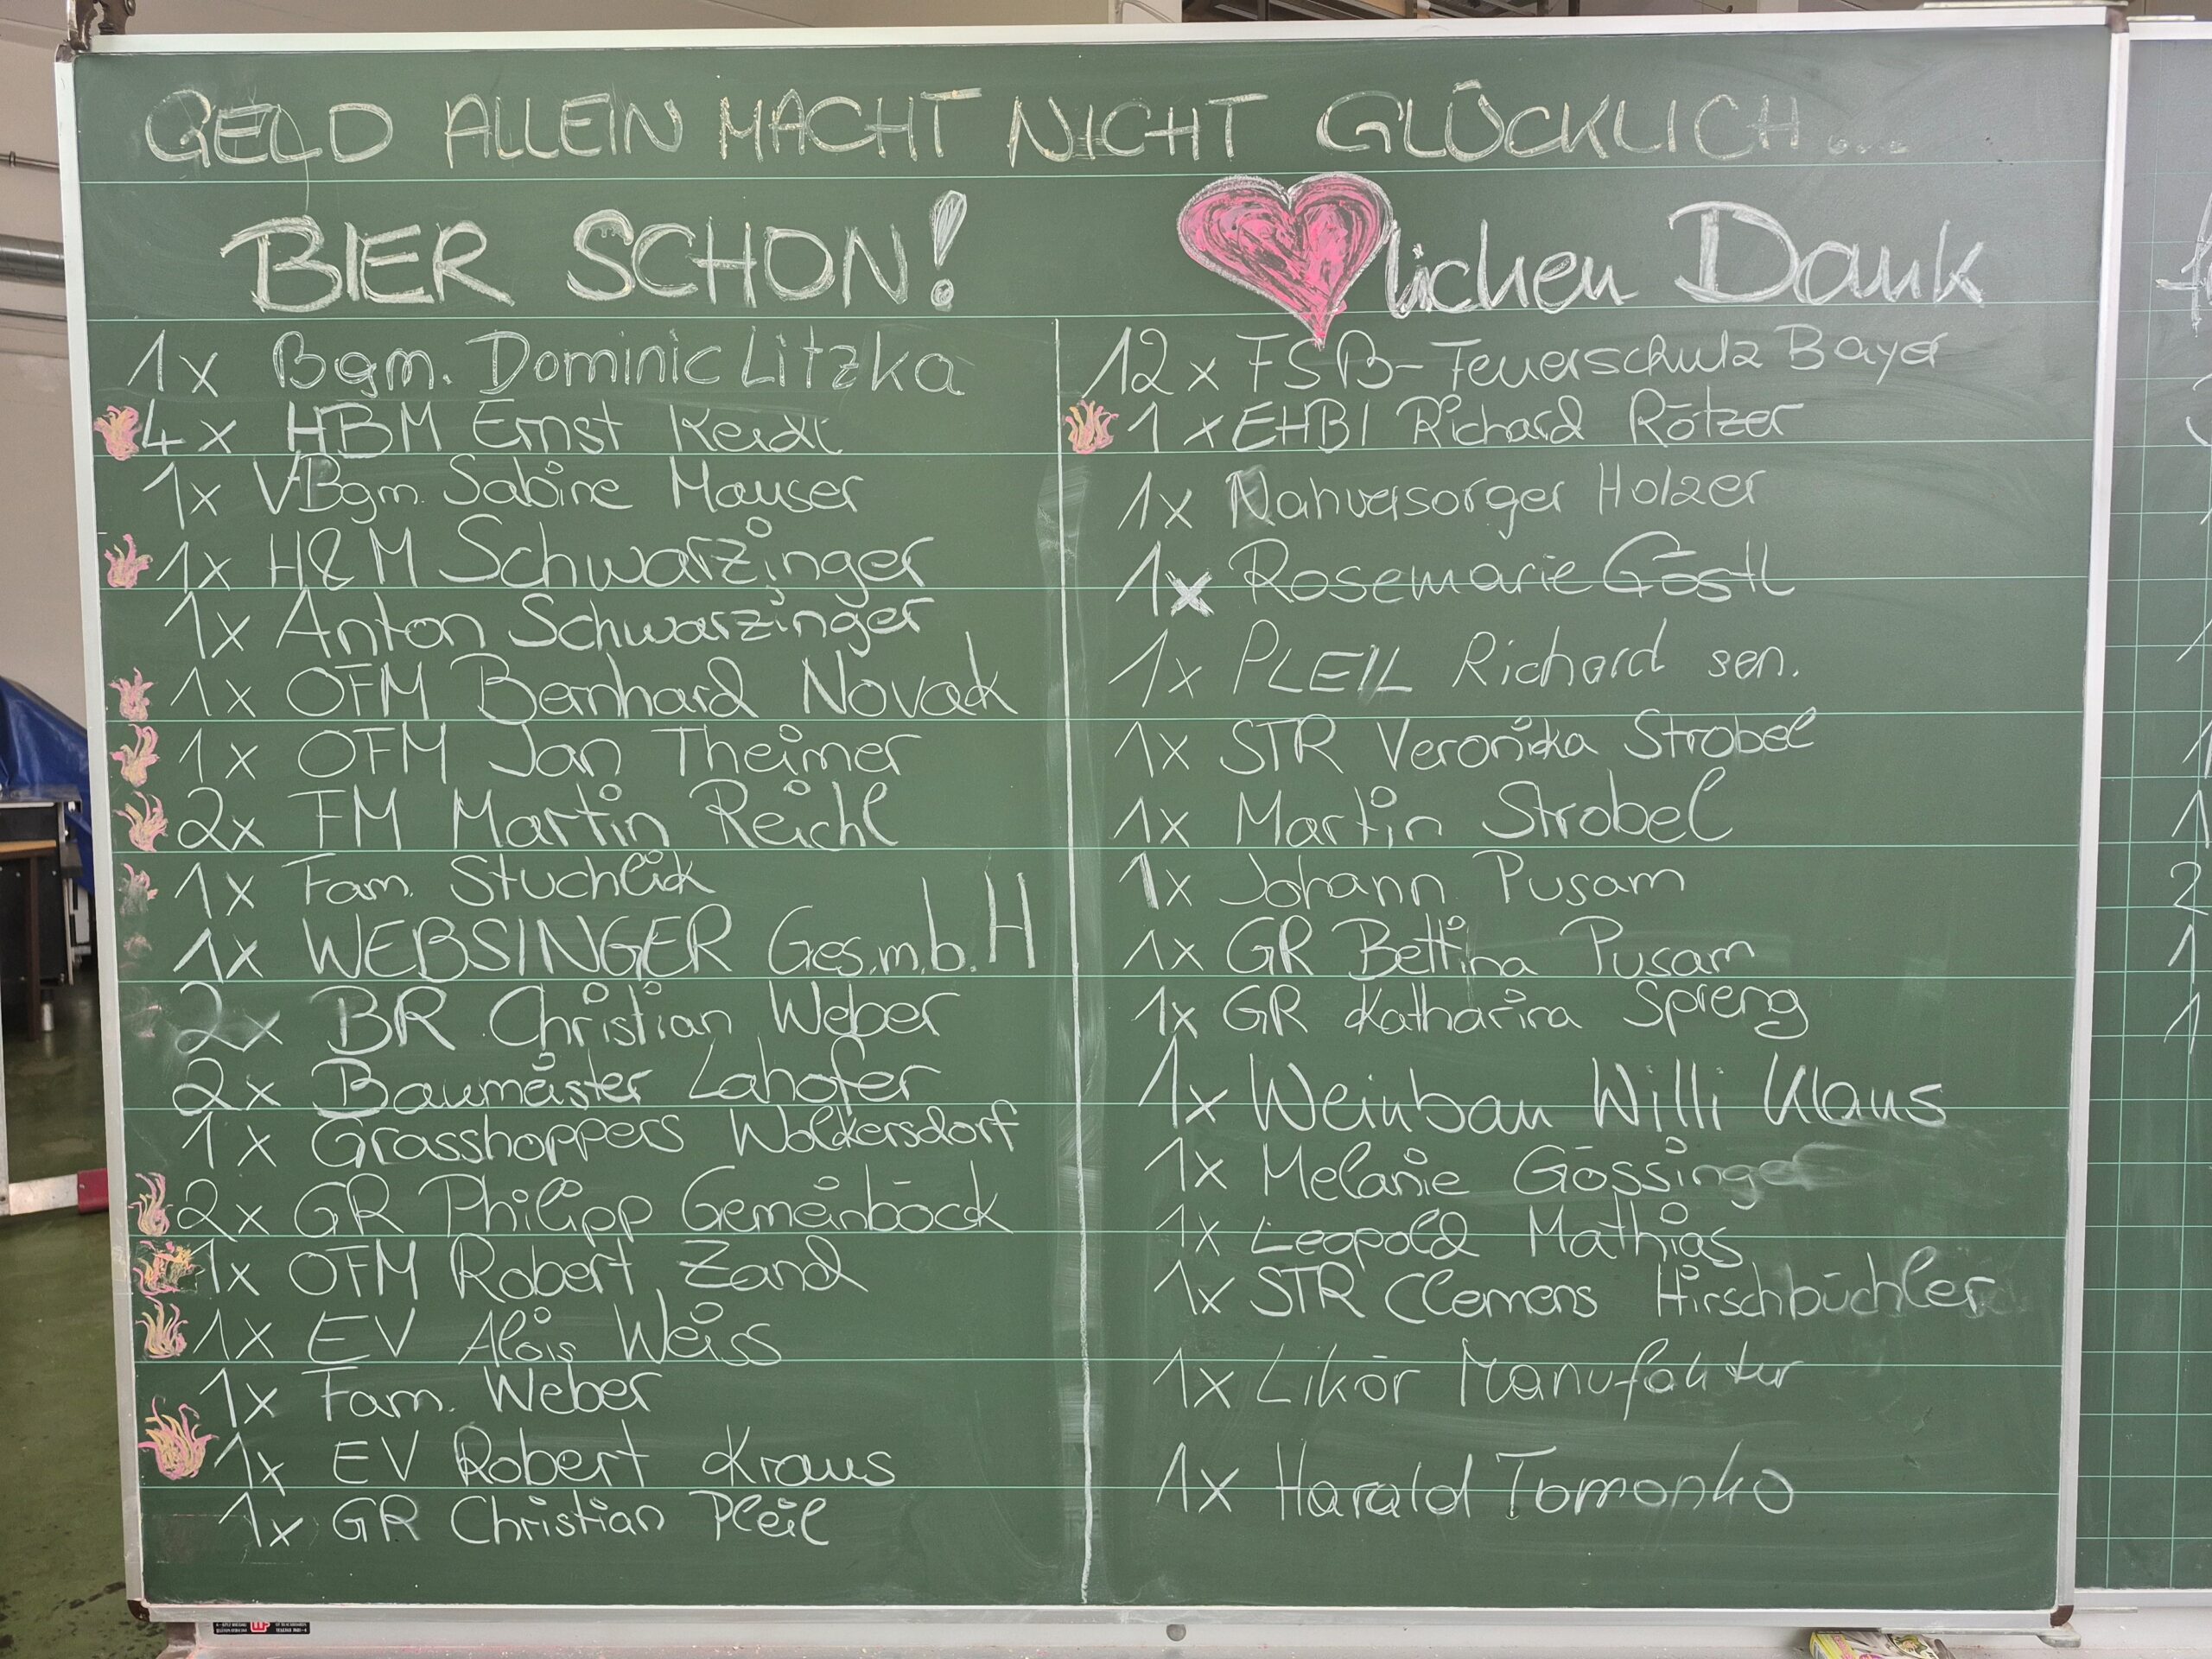 GELD ALLEIN MACHT NICHT GLÜCKLICH...
BIER SCHON!
lichen Dank
1x Bgm. Dominic Litzka
4x HBM Ernst Keidl
1x VBgm. Sabine Mauser
1x H&M Schwarzinger
1x Anton Schwarzinger
1x OFM Bernhard Novak
1x OFM Jan Theimer
2x FM Martin Reichl
1x Fam. Stuchlik
1x WEBSINGER Ges.m.b.H
2x BR Christian Weber
2x Baumeister Lahofer
1x Grasshoppers Wolkersdorf
2x GR Philipp Gemeinböck
1x OFM Robert Zand
1x EV Alois Weiss
1x Fam. Weber
1x EV Robert Kraus
1x GR Christian Pleil
12x FSB-Feuerschutz Bayer
1x EHBI Richard Rötzer
1x Nahversorger Holzer
1x Rosemarie Göstl
1x PLEIL Richard sen.
1x STR Veronika Strobel
1x Martin Strobel
1x Johann Pusam
1x GR Bettina Pusam
1x GR Katharina Spreng
1x Weinbau Willi Klaus
1x Melanie Gössinger
1x Leopold Mathias
1x STR Clemens Hirschbüchler
1x Likör Manufaktur
1x Harald Tomonko